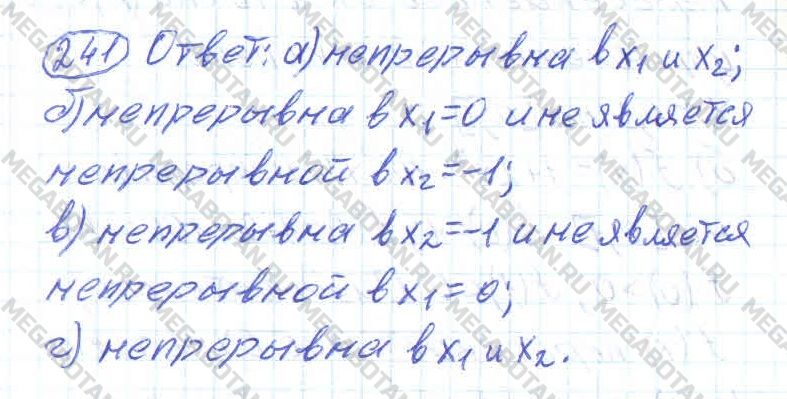 241 Ответ: а) непрерывна в x₁ и x₂;
б) непрерывна в x₁=0 и не является
непрерывной в x₂=-1;
в) непрерывна в x₂=-1 и не является
непрерывной в x₁=0;
г) непрерывна в x₁ и x₂.
MEGABOTAN.RU